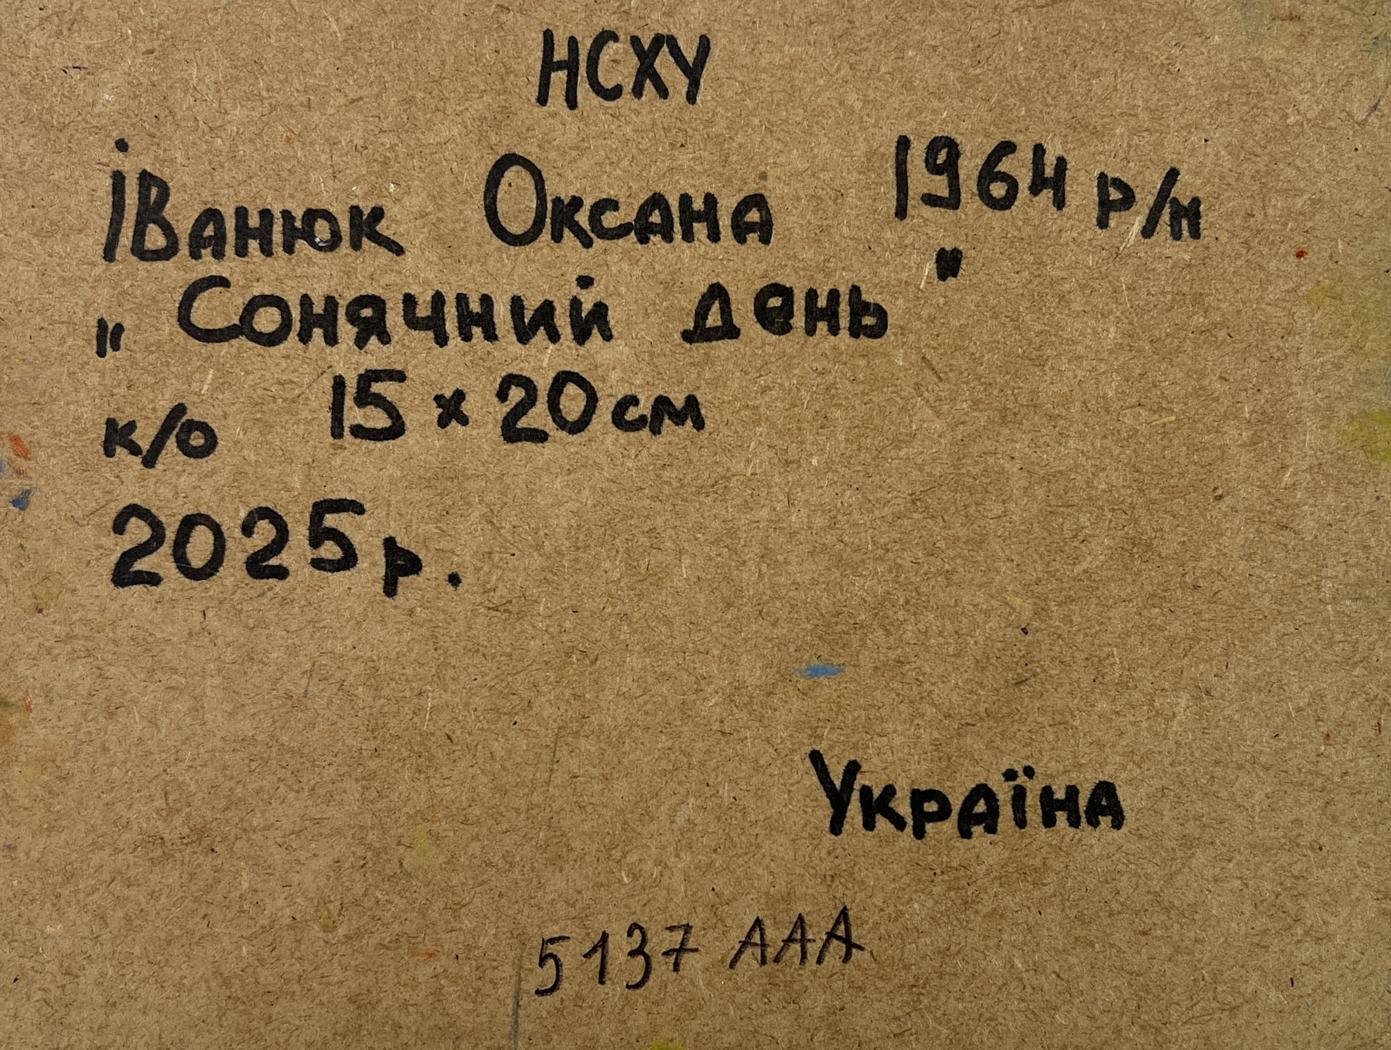 НСХУ
Іванюк Оксана 1964 р/н
„Сонячний день"
к/о 15 x 20 см
2025 р.
Україна
5137 AAA